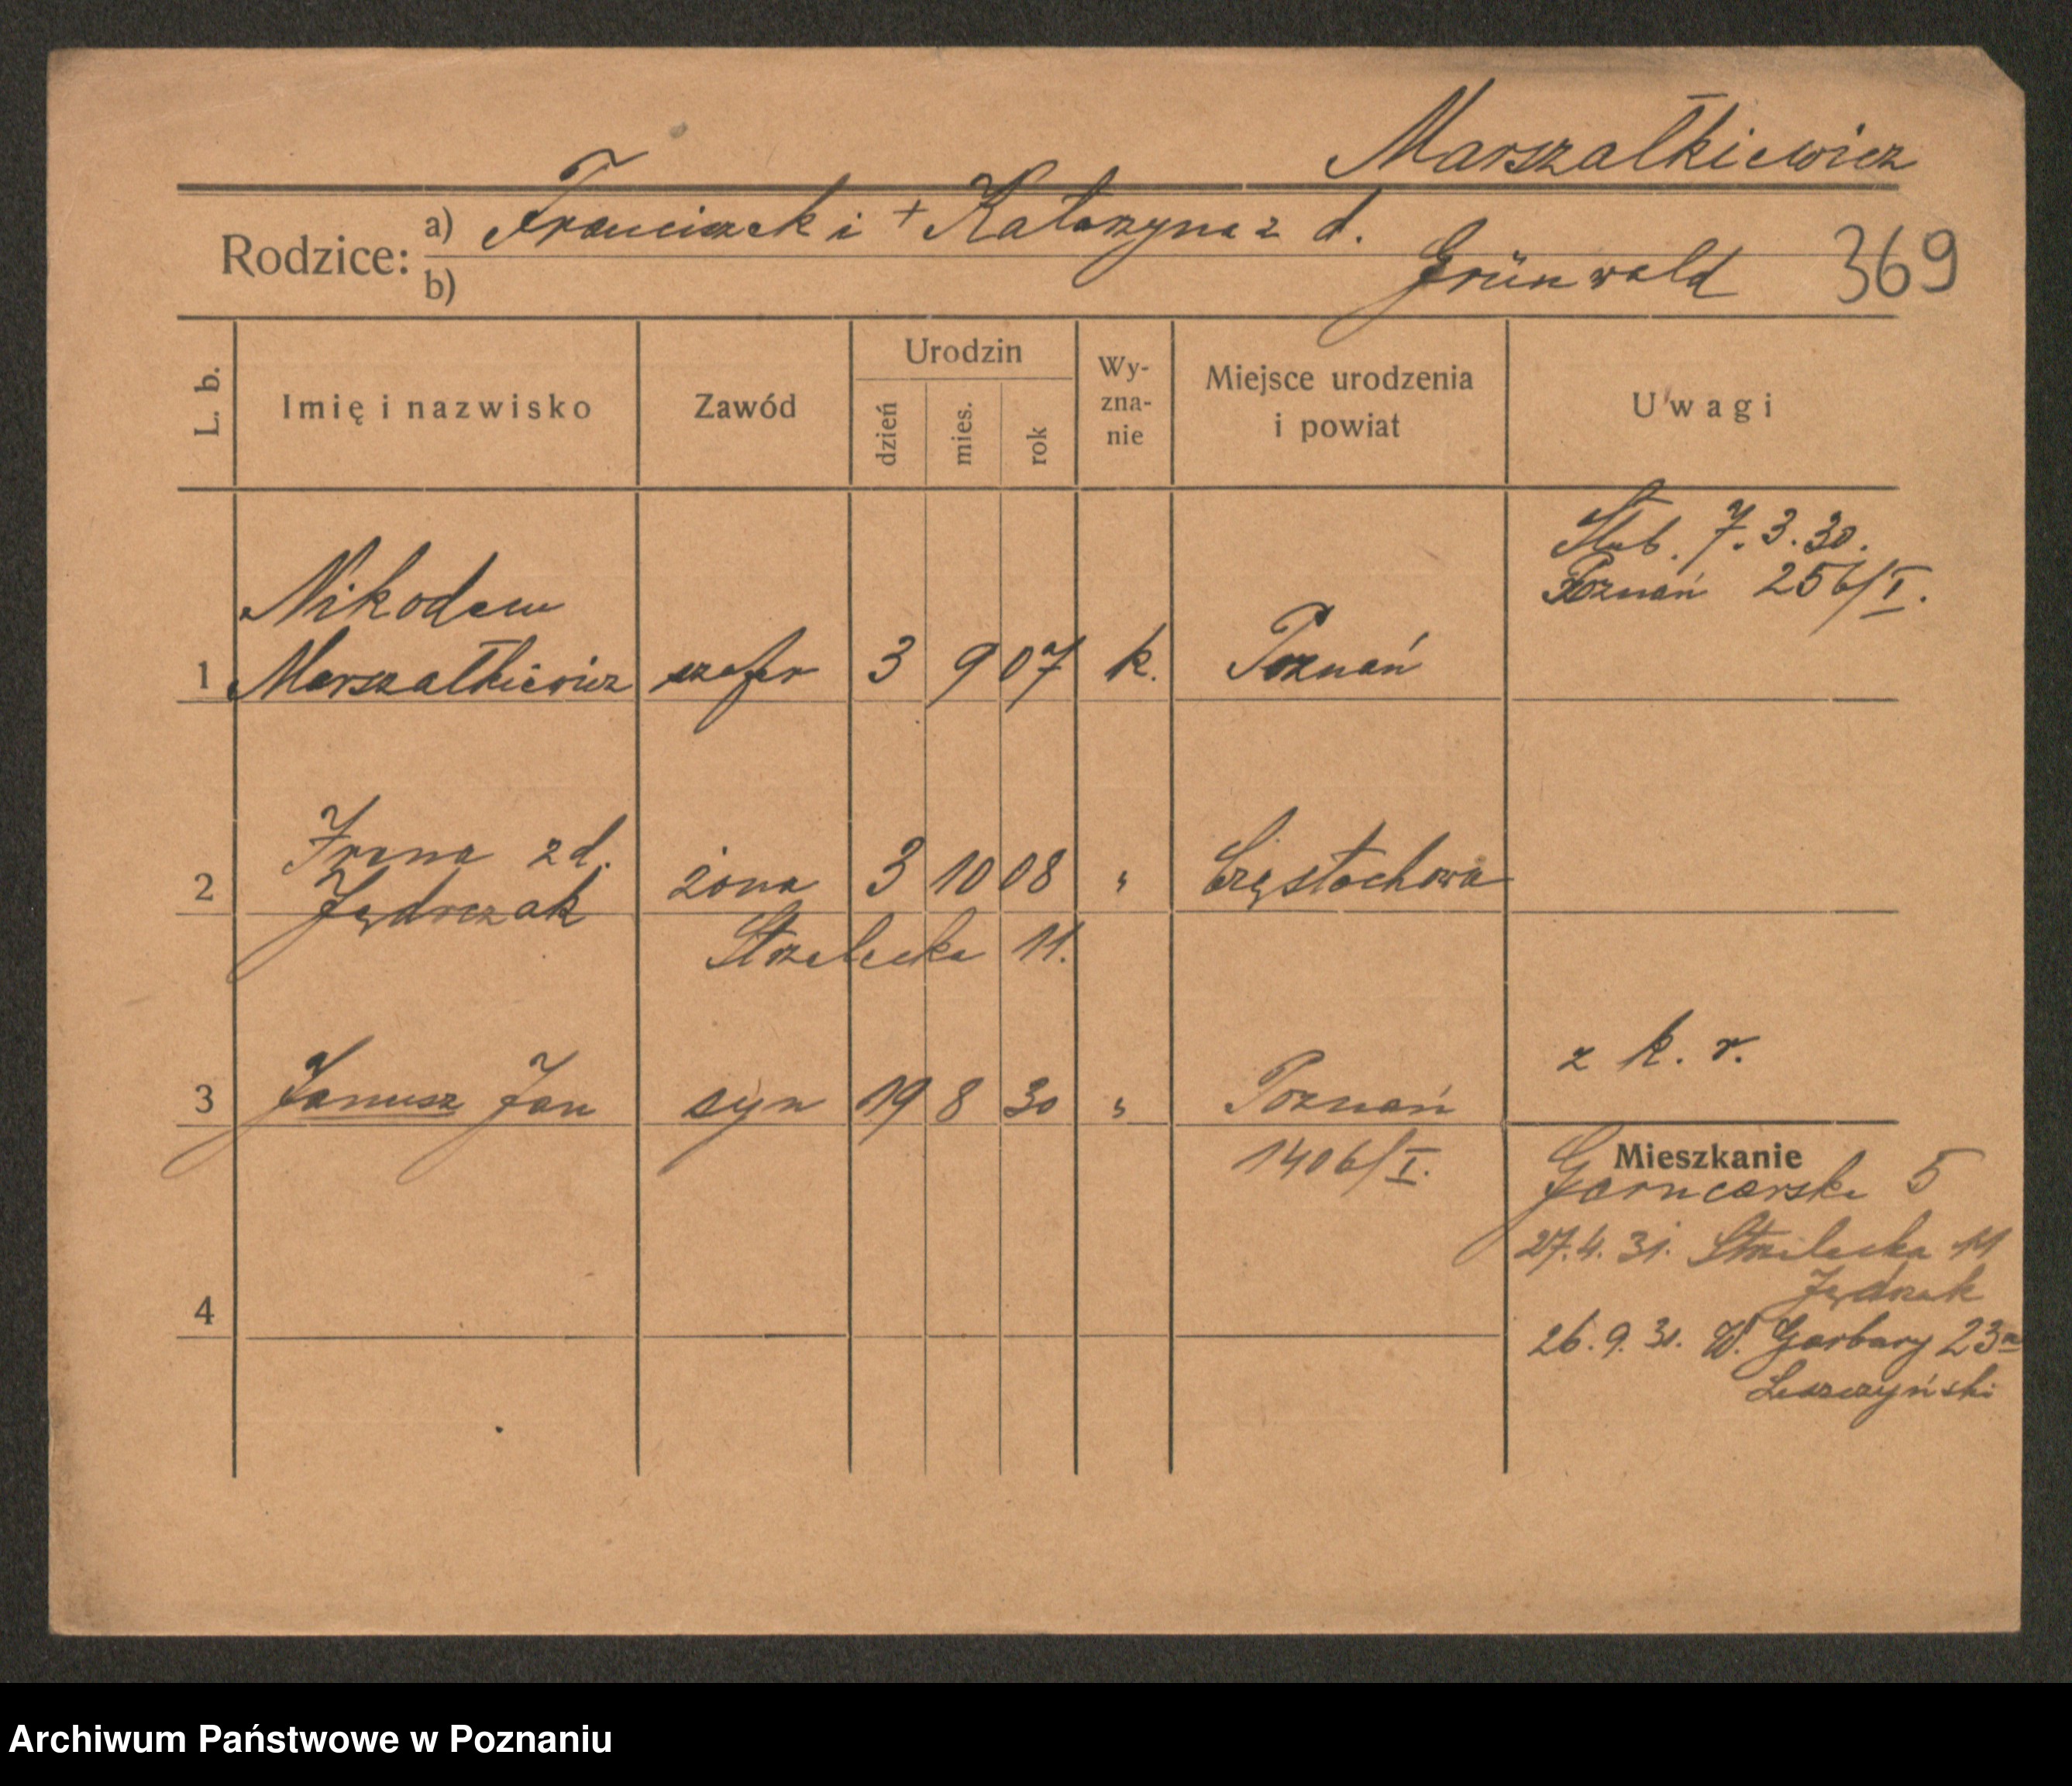 Marszałkiewicz
Rodzice: a) Franciszek i + Katarzyna z d.
b) Grünwald 369
L. b. Imię i nazwisko Zawód Urodzin dzień mies. rok Wy-zna-nie Miejsce urodzenia i powiat Uwagi
Ślub. 7. 3. 30.
Poznań 256/I.
Nikodem
1 Marszałkiewicz szofer 3 9 07 k. Poznań
Irena z d.
2 Jędrczak żona 3 10 08 " Częstochowa
Strzelecka 11.
z k. r.
3 Janusz Jan syn 19 8 30 " Poznań
1406/I.
Mieszkanie
Garncarska 5
27. 4. 31. Strzelecka 11
Jędrzak
4
26. 9. 31. W. Garbary 23a
Leszczyński
Archiwum Państwowe w Poznaniu